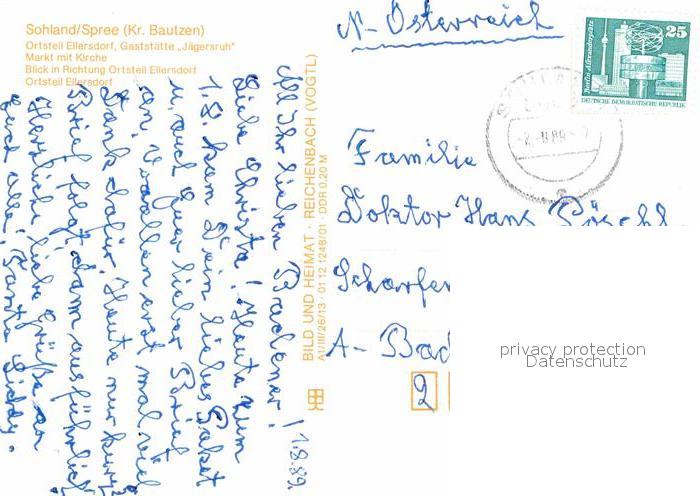 Sohland/Spree (Kr. Bautzen)
Ortsteil Ellersdorf, Gaststätte „Jägersruh"
Markt mit Kirche
Blick in Richtung Ortsteil Ellersdorf
Ortsteil Ellersdorf
All Ihr lieben Badener!
1.8.89.
Liebe Christa! Heute zum
1.8. kam Dein liebes Paket
u. auch Euer lieber Brief
an. Vor allem erst mal viel
Dank dafür. Heute nur kurz,
Brief folgt dann ausführlich
Herzliche liebe Grüße an
Euch alle! Tante
BILD UND HEIMAT · REICHENBACH (VOGTL)
A1/III/26/13 · 01 12 1248/01 · DDR 0,20 M
N-Österreich
25
Berlin, Alexanderplatz
DEUTSCHE DEMOKRATISCHE REPUBLIK
Familie
Doktor Hans Pöschl
A-
2
privacy protection
Datenschutz